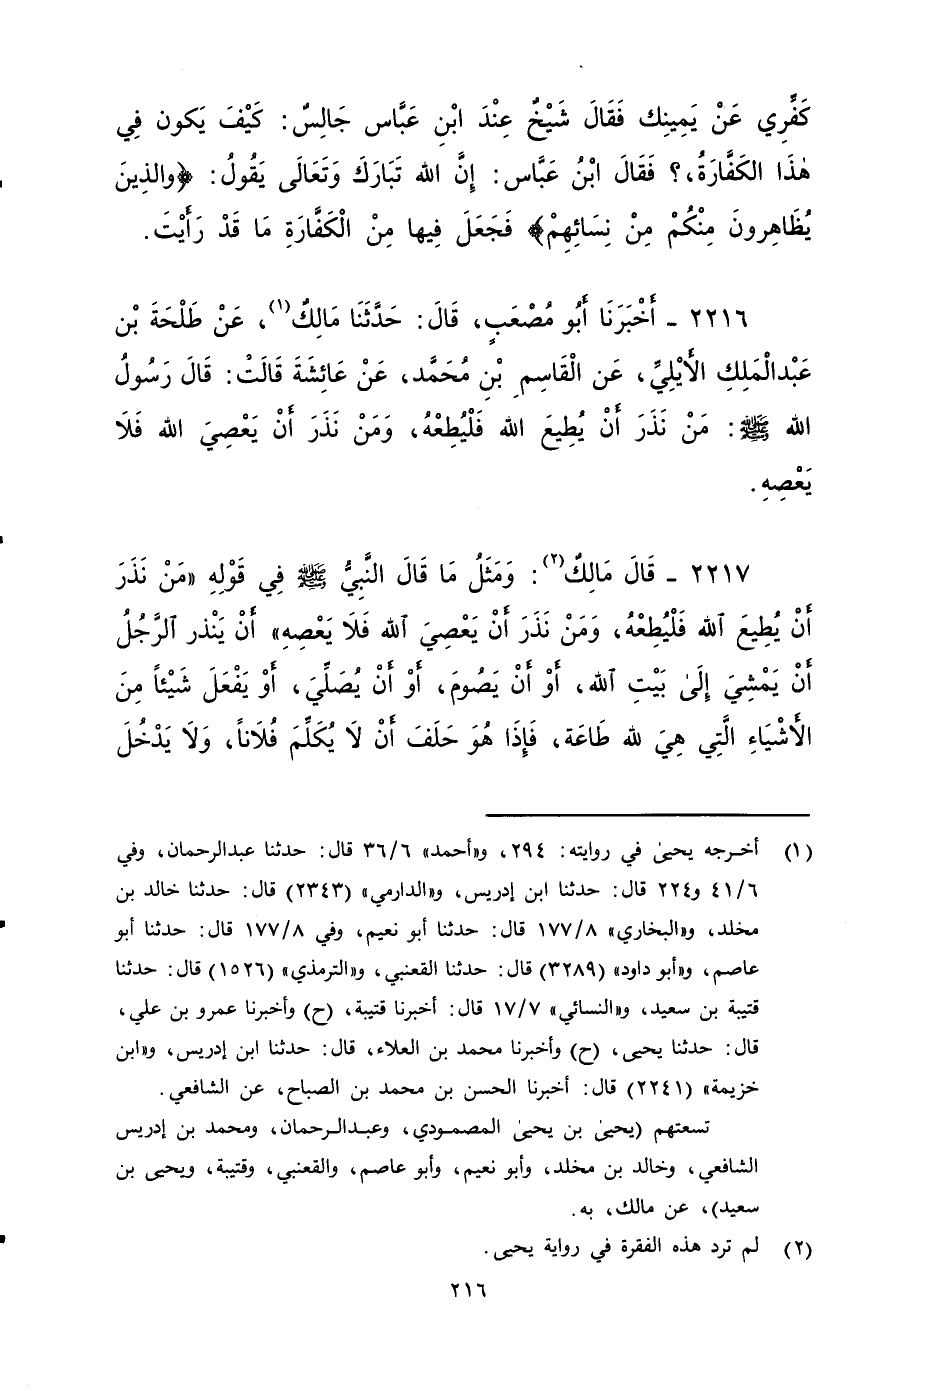 كَفِّرِي عَنْ يَمِينِك فَقَالَ شَيْخٌ عِنْدَ ابْنِ عَبَّاس جَالِسٌ: كَيْفَ يَكون فِي
هٰذَا الكَفَّارَةُ،؟ فَقَالَ ابْنُ عَبَّاس: إِنَّ الله تَبَارَكَ وَتَعَالَى يَقُولُ: ﴿والذِينَ
يُظَاهِرونَ مِنْكُمْ مِنْ نِسَائِهِمْ﴾ فَجَعَلَ فِيها مِنْ الْكَفَّارَةِ مَا قَدْ رَأَيْتَ.
٢٢١٦ ـ أَخْبَرَنَا أَبُو مُصْعَبٍ، قَالَ: حَدَّثَنَا مَالِكٌ(١)، عَنْ طَلْحَةَ بْن
عَبْدالْمَلِكِ الأَيْلِيِّ، عَن الْقَاسِمِ بْنِ مُحَمَّد، عَنْ عَائِشَةَ قَالَتْ: قَالَ رَسُولُ
الله ﷺ: مَنْ نَذَرَ أَنْ يُطِيعَ الله فَلْيُطِعْهُ، وَمَنْ نَذَرَ أَنْ يَعْصِيَ الله فَلَا
يَعْصِهِ.
٢٢١٧ ـ قَالَ مَالِكٌ(٢): وَمَثَلُ مَا قَالَ النَّبِيُّ ﷺ فِي قَوْلِهِ «مَنْ نَذَرَ
أَنْ يُطِيعَ ٱلله فَلْيُطِعْهُ، وَمَنْ نَذَرَ أَنْ يَعْصِيَ ٱلله فَلَا يَعْصِهِ» أَنْ يَنْذر ٱلرَّجُلُ
أَنْ يَمْشِيَ إِلَىٰ بَيْتِ ٱلله، أَوْ أَنْ يَصُومَ، أَوْ أَنْ يُصَلِّيَ، أَو يَفْعَلَ شَيْئاً مِنَ
الأَشْيَاءِ الَّتِي هِيَ لله طَاعَة، فَإِذَا هُوَ حَلَفَ أَنْ لَا يُكَلِّمَ فُلَاناً، وَلَا يَدْخُلَ
(١) أخرجه يحيىٰ في روايته: ٢٩٤، و«أحمد» ٣٦/٦ قال: حدثنا عبدالرحمان، وفي
٤١/٦ و٢٢٤ قال: حدثنا ابن إدريس، و«الدارمي» (٢٣٤٣) قال: حدثنا خالد بن
مخلد، و«البخاري» ١٧٧/٨ قال: حدثنا أبو نعيم، وفي ١٧٧/٨ قال: حدثنا أبو
عاصم، و«أبو داود» (٣٢٨٩) قال: حدثنا القعنبي، و«الترمذي» (١٥٢٦) قال: حدثنا
قتيبة بن سعيد، و«النسائي» ١٧/٧ قال: أخبرنا قتيبة، (ح) وأخبرنا عمرو بن علي،
قال: حدثنا يحيى، (ح) وأخبرنا محمد بن العلاء، قال: حدثنا ابن إدريس، و«ابن
خزيمة» (٢٢٤١) قال: أخبرنا الحسن بن محمد بن الصباح، عن الشافعي.
تسعتهم (يحيىٰ بن يحيىٰ المصمودي، وعبدالرحمان، ومحمد بن إدريس
الشافعي، وخالد بن مخلد، وأبو نعيم، وأبو عاصم، والقعنبي، وقتيبة، ويحيى بن
سعيد)، عن مالك، به.
(٢) لم ترد هذه الفقرة في رواية يحيى.
٢١٦